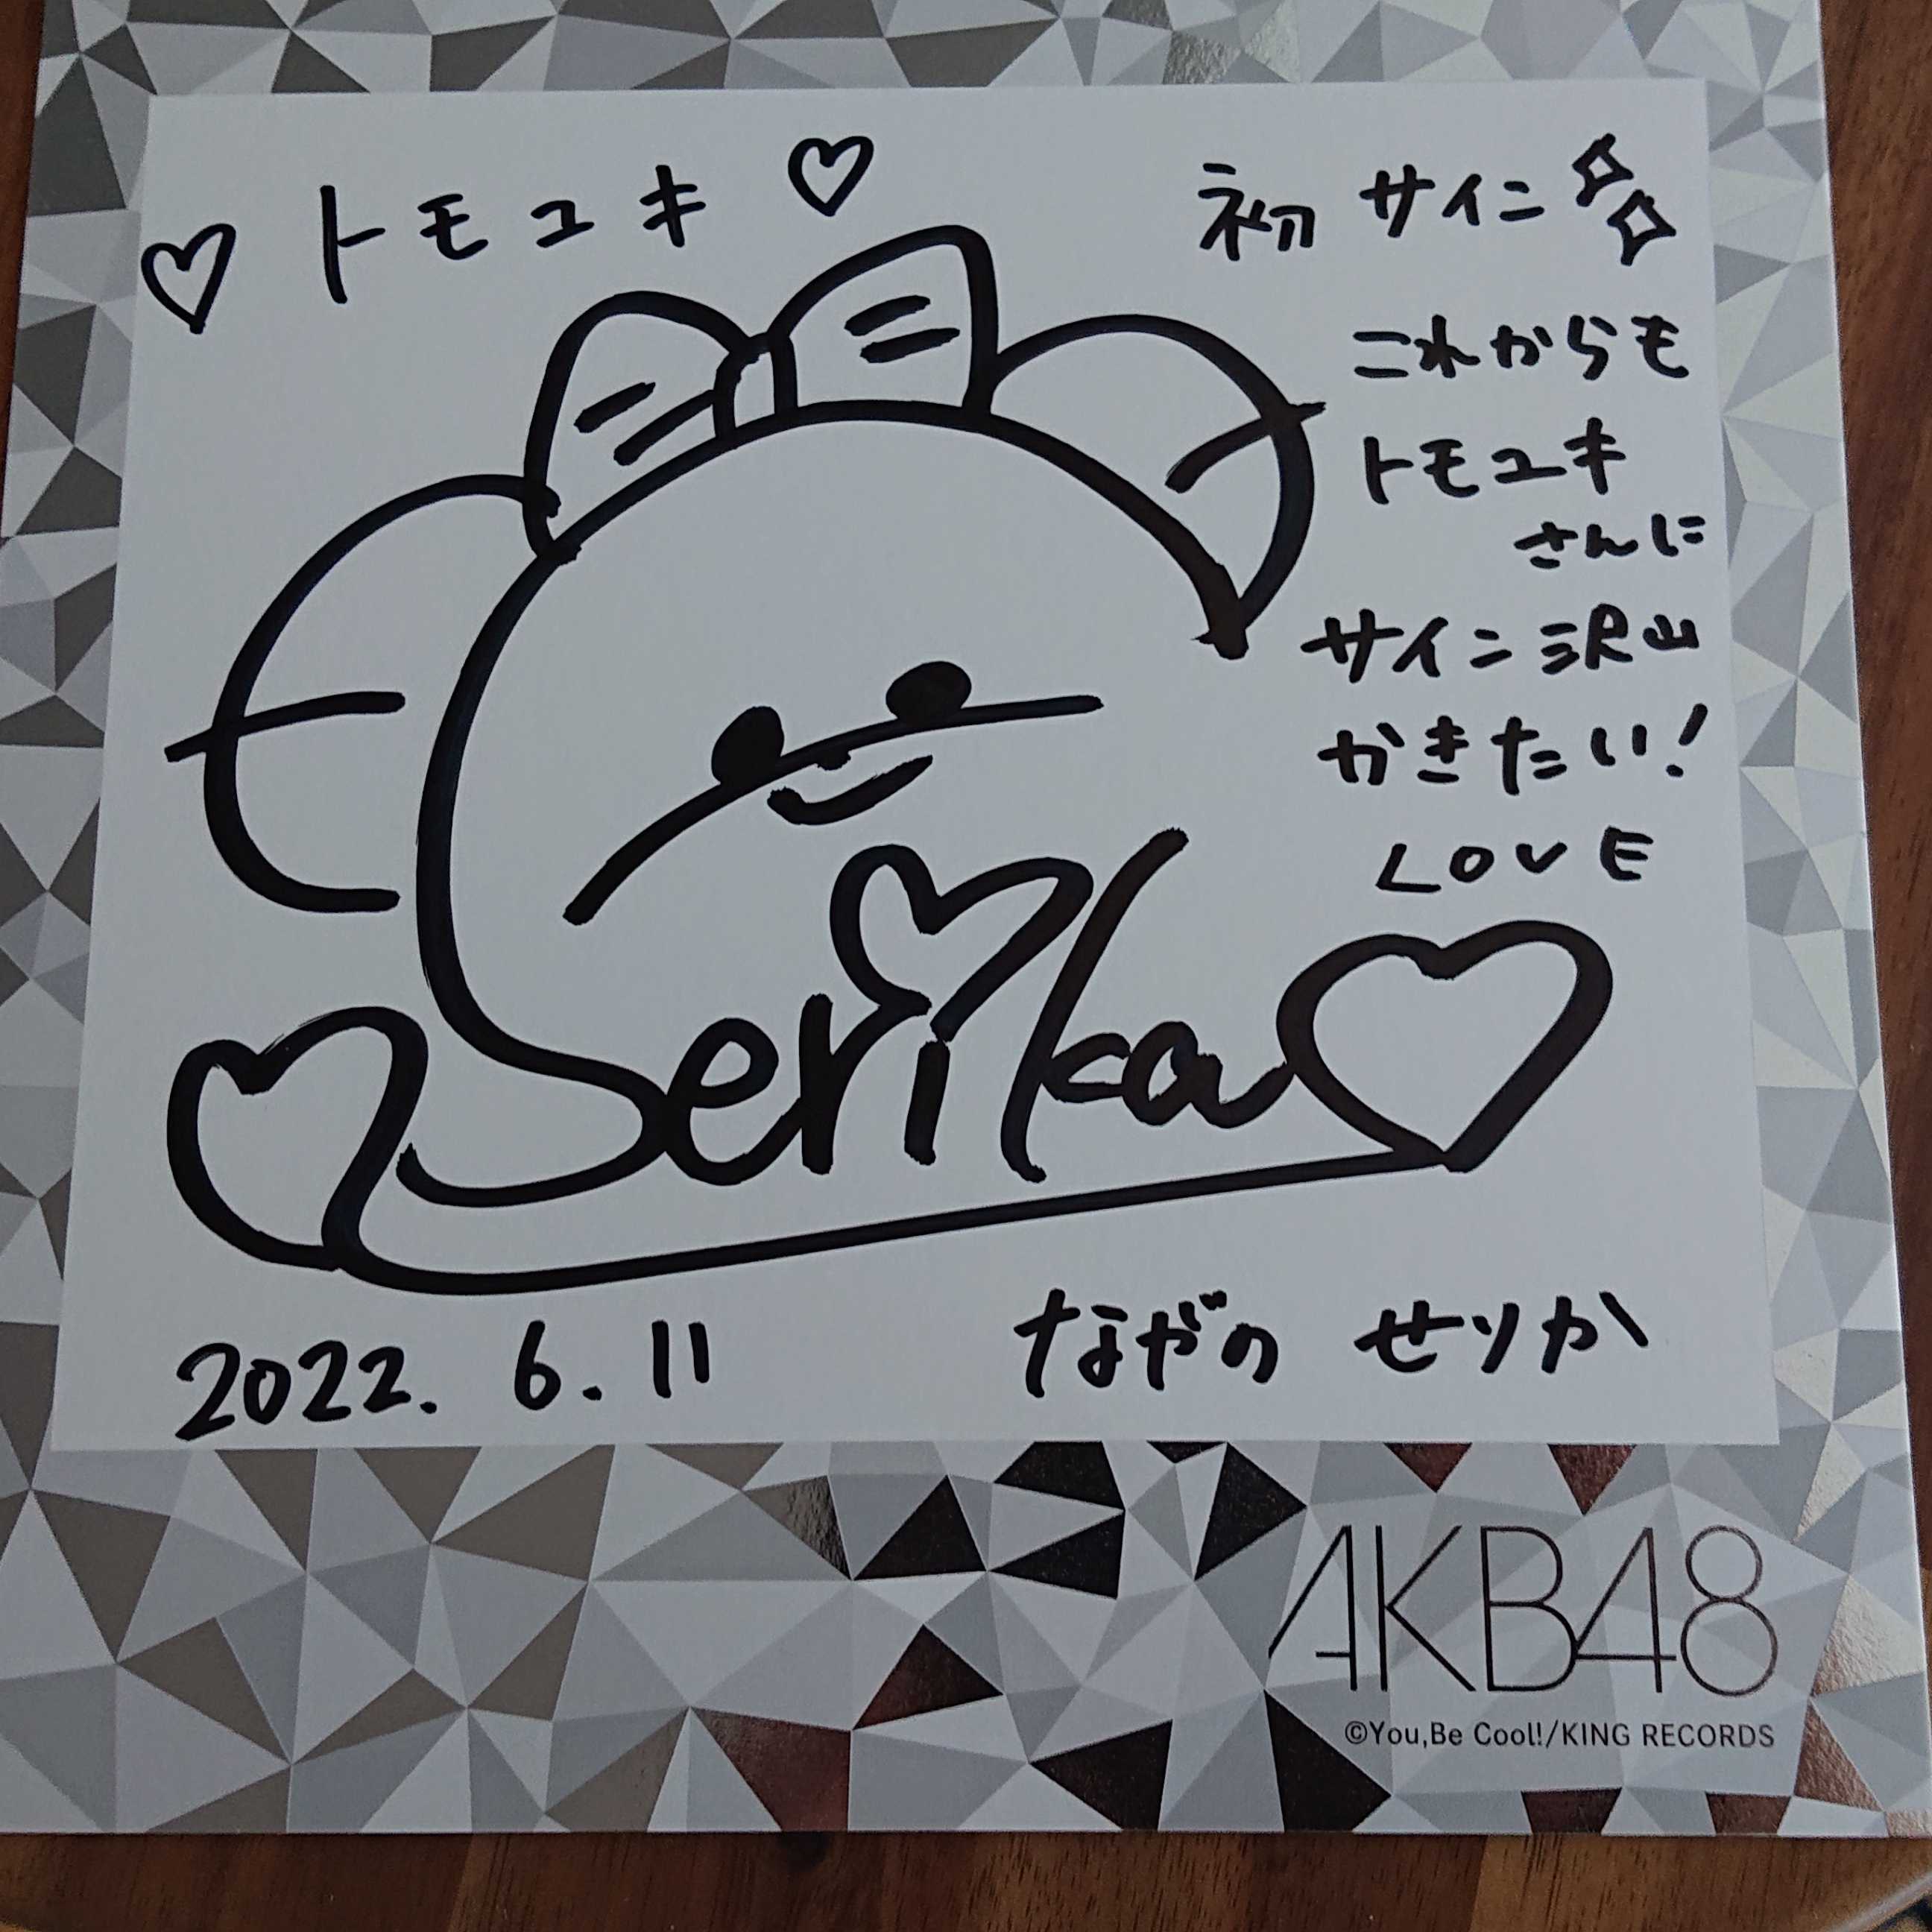 ♡ トモユキ ♡
初サイン
これからも
トモユキ
さんに
サイン沢山
かきたい!
LOVE
Serika
2022. 6. 11
ながの せりか
AKB48
©You,Be Cool!/KING RECORDS